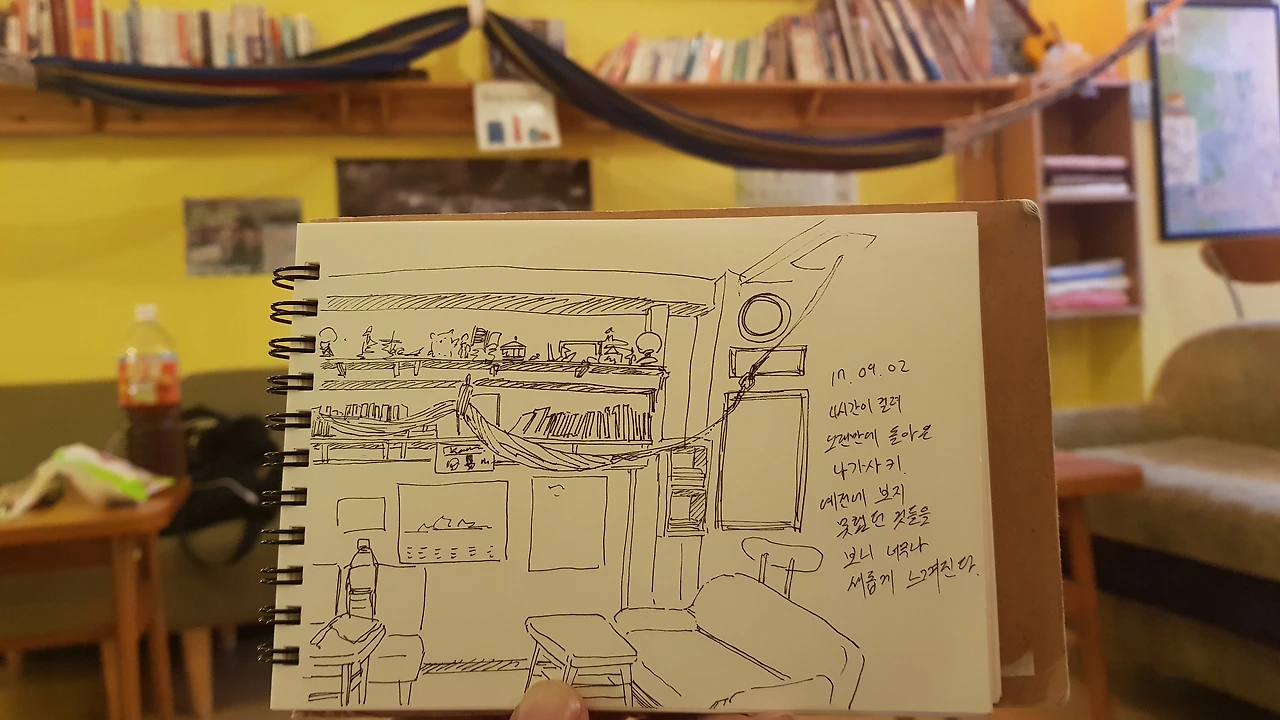 17. 09. 02
4시간이 걸려
오랜만에 돌아온
나가사키.
예전에 보지
못했던 것들을
보니 너무나
새롭게 느껴진다.